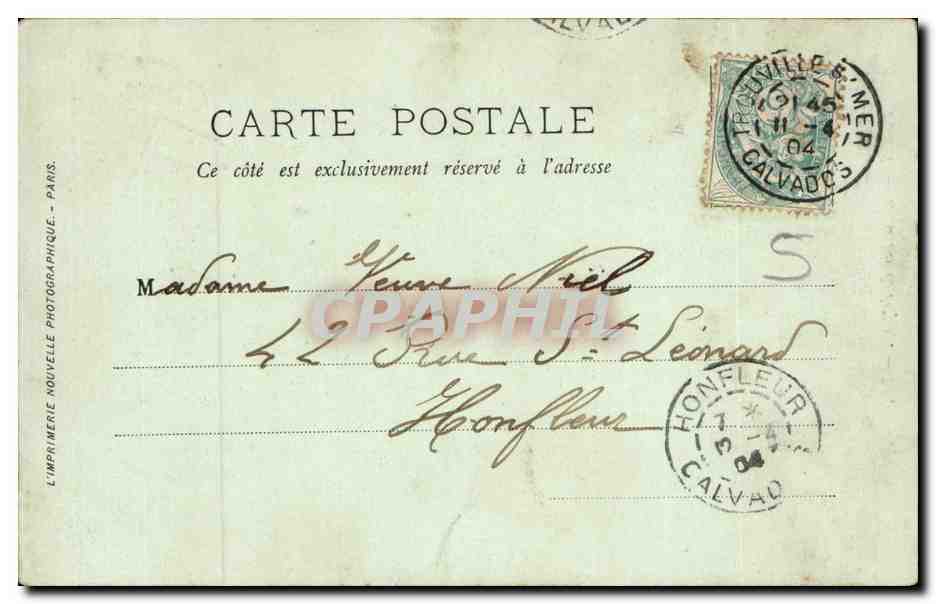 CALVADOS
CARTE POSTALE
Ce côté est exclusivement réservé à l'adresse
TROUVILLE S/ MER
45
11 -4
04
CALVADOS
S
Madame Veuve Niël
CPAPHIL
42 Rue St Léonard
Honfleur
HONFLEUR
04
CALVAD
L'IMPRIMERIE NOUVELLE PHOTOGRAPHIQUE. - PARIS.